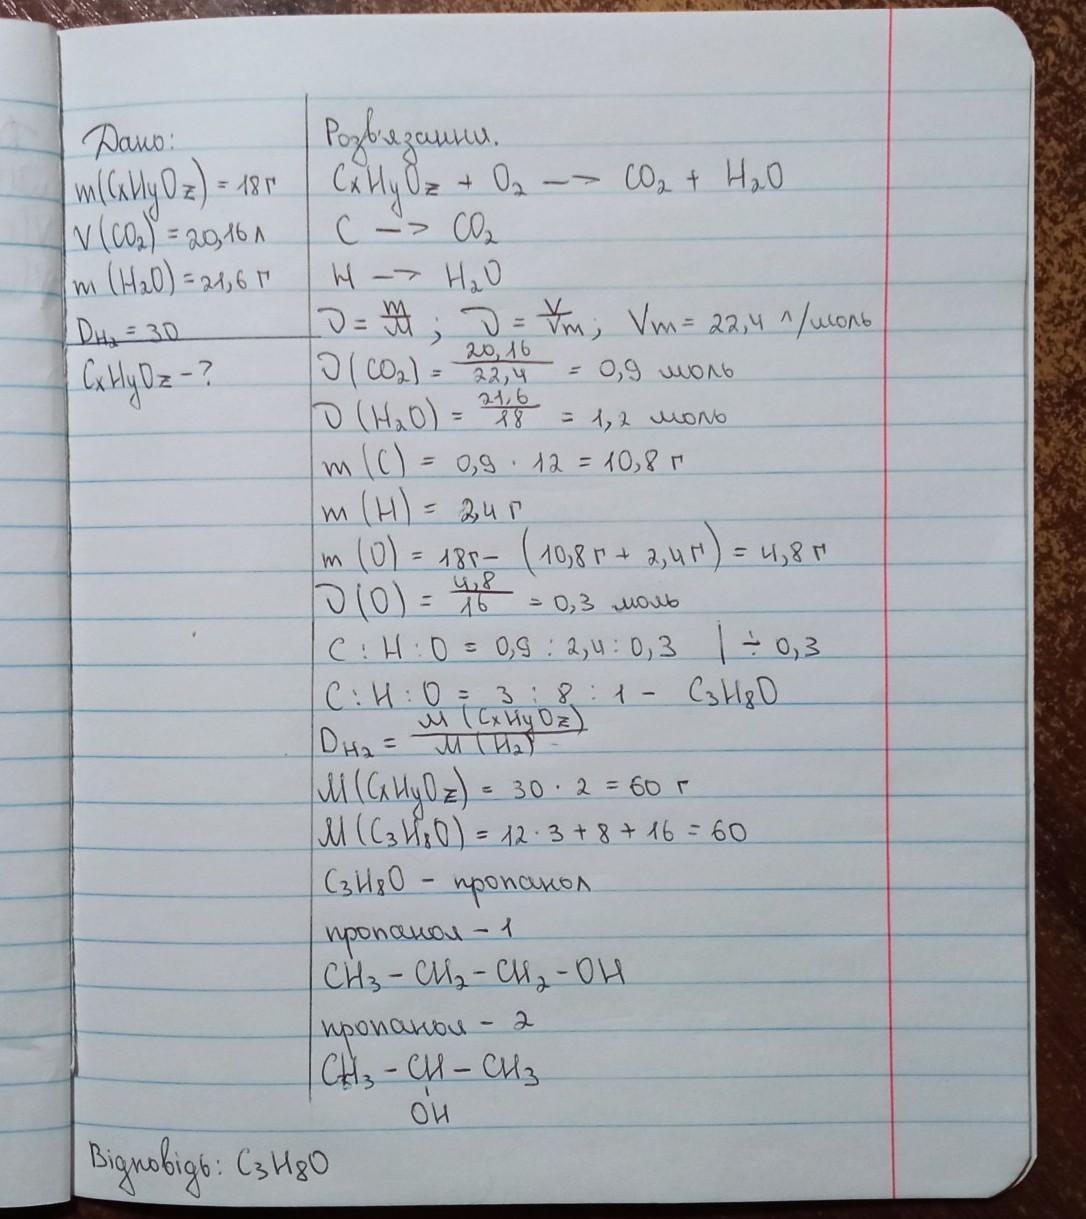 Дано:
m(CxHyOz) = 18 г
V(CO₂) = 20,16 л
m(H₂O) = 21,6 г
DH₂ = 30
CxHyOz - ?
Розв'язання.
CxHyOz + O₂ —> CO₂ + H₂O
C —> CO₂
H —> H₂O
ν = m/M ; ν = V/Vm; Vm = 22,4 л/моль
ν(CO₂) = 20,16/22,4 = 0,9 моль
ν(H₂O) = 21,6/18 = 1,2 моль
m(C) = 0,9 · 12 = 10,8 г
m(H) = 2,4 г
m(O) = 18г - (10,8 г + 2,4 г) = 4,8 г
ν(O) = 4,8/16 = 0,3 моль
C : H : O = 0,9 : 2,4 : 0,3 | ÷ 0,3
C : H : O = 3 : 8 : 1 - C₃H₈O
DH₂ = M(CxHyOz)/M(H₂)
M(CxHyOz) = 30 · 2 = 60 г
M(C₃H₈O) = 12 · 3 + 8 + 16 = 60
C₃H₈O - пропанол
пропанол - 1
CH₃ - CH₂ - CH₂ - OH
пропанол - 2
CH₃ - CH - CH₃
OH
Відповідь: C₃H₈O